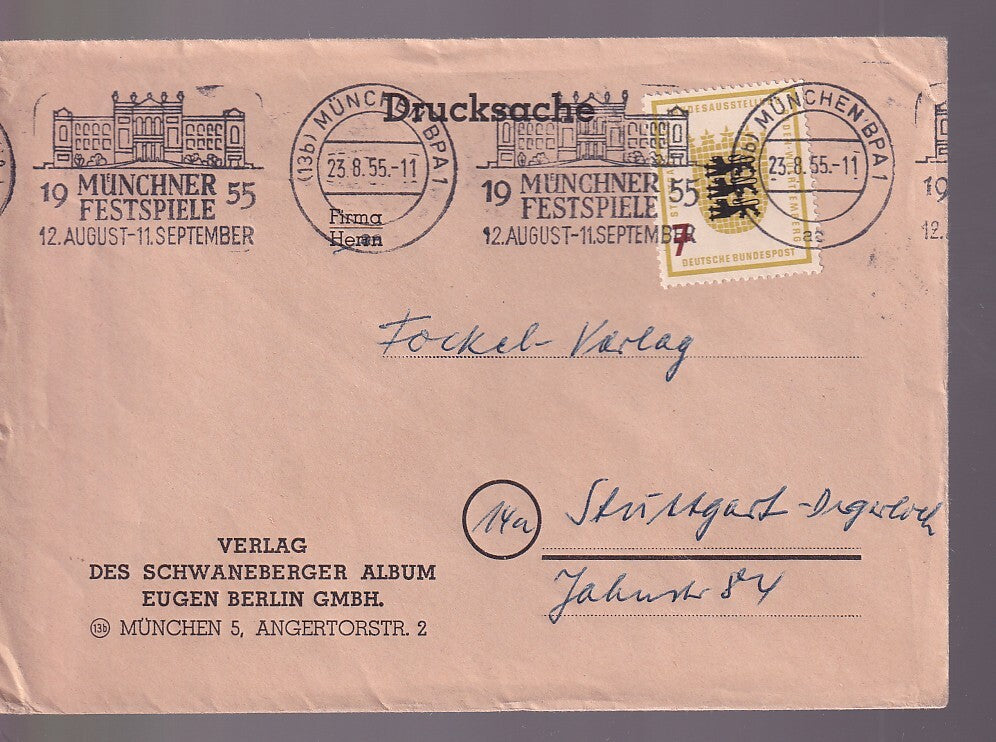 Drucksache
(13b) MÜNCHEN BPA 1
23.8.55.-11
19 MÜNCHNER 55
FESTSPIELE
12.AUGUST-11.SEPTEMBER
19 MÜNCHNER 55
FESTSPIELE
12.AUGUST-11.SEPTEMBER
MÜNCHEN·BPA 1
23.8.55.-11
19
12.
7
DEUTSCHE BUNDESPOST
Firma
Herrn
Fockel-Verlag
14a Stuttgart-Degerloch
Jahnstr 84
VERLAG
DES SCHWANEBERGER ALBUM
EUGEN BERLIN GMBH.
13b MÜNCHEN 5, ANGERTORSTR. 2